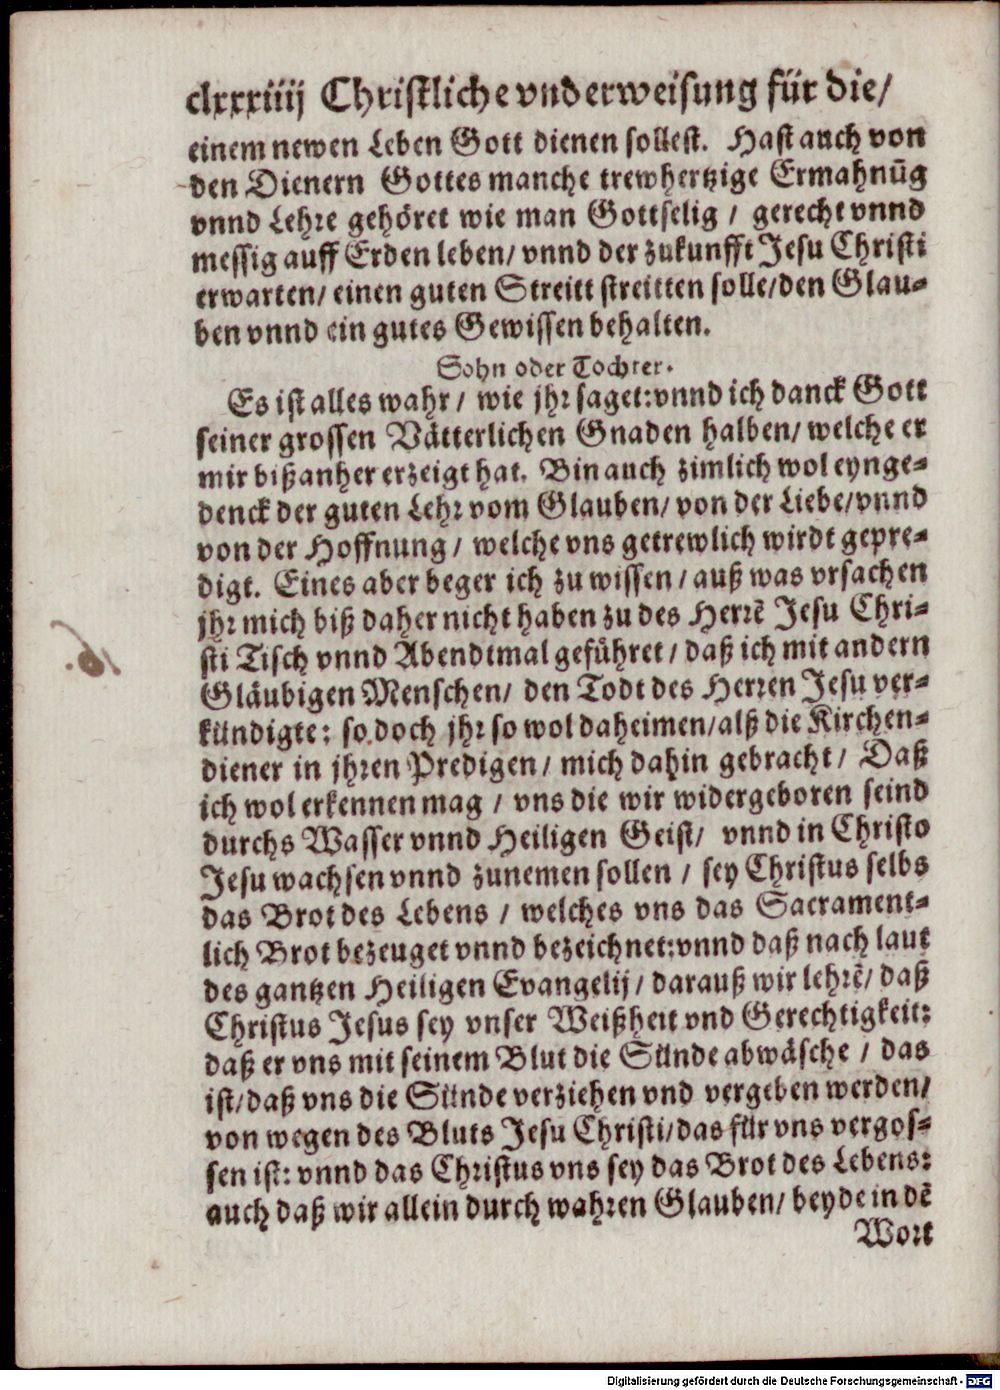 clxxxiiij Christliche vnderweisung für die/
einem newen Leben Gott dienen sollest. Hast auch von
den Dienern Gottes manche trewhertzige Ermahnūg
vnnd Lehre gehöret wie man Gottselig / gerecht vnnd
messig auff Erden leben/ vnnd der zukunfft Jesu Christi
erwarten/ einen guten Streitt streitten solle/den Glau-
ben vnnd ein gutes Gewissen behalten.
Sohn oder Tochter.
Es ist alles wahr / wie jhr saget:vnnd ich danck Gott
seiner grossen Vätterlichen Gnaden halben/ welche er
mir bißanher erzeigt hat. Bin auch zimlich wol eynge-
denck der guten Lehr vom Glauben/ von der Liebe/vnnd
von der Hoffnung / welche vns getrewlich wirdt gepre-
digt. Eines aber beger ich zu wissen / auß was vrsachen
jhr mich biß daher nicht haben zu des Herrē Jesu Chri-
sti Tisch vnnd Abendtmal geführet / daß ich mit andern
Gläubigen Menschen/ den Todt des Herren Jesu ver-
kündigte: so doch jhr so wol daheimen/alß die Kirchen-
diener in jhren Predigen / mich dahin gebracht / Daß
ich wol erkennen mag / vns die wir widergeboren seind
durchs Wasser vnnd Heiligen Geist/ vnnd in Christo
Jesu wachsen vnnd zunemen sollen / sey Christus selbs
das Brot des Lebens / welches vns das Sacrament-
lich Brot bezeuget vnnd bezeichnet:vnnd daß nach laut
des gantzen Heiligen Evangelij / darauß wir lehrē/ daß
Christus Jesus sey vnser Weißheit vnd Gerechtigkeit:
daß er vns mit seinem Blut die Sünde abwäsche / das
ist/daß vns die Sünde verziehen vnd vergeben werden/
von wegen des Bluts Jesu Christi/das für vns vergos-
sen ist: vnnd das Christus vns sey das Brot des Lebens:
auch daß wir allein durch wahren Glauben/ beyde in dē
Wort
Digitalisierung gefördert durch die Deutsche Forschungsgemeinschaft - DFG